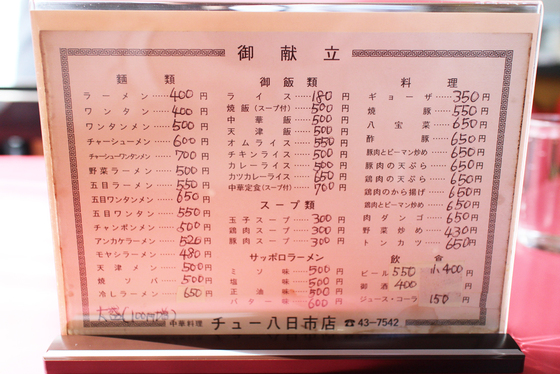 御献立
麺類
ラーメン 400円
ワンタン 400円
ワンタンメン 500円
チャーシューメン 600円
チャーシューワンタンメン 700円
野菜ラーメン 500円
五目ラーメン 550円
五目ワンタンメン 650円
五目ワンタン 550円
チャンポンメン 500円
アンカケラーメン 520円
モヤシラーメン 480円
天津メン 500円
焼ソバ 500円
冷しラーメン 650円
大盛(100円増)
御飯類
ライス 180円
焼飯(スープ付) 500円
中華飯 500円
天津飯 500円
オムライス 550円
チキンライス 500円
カレーライス 500円
カツカレーライス 650円
中華定食(スープ付) 700円
スープ類
玉子スープ 300円
鶏肉スープ 300円
豚肉スープ 300円
サッポロラーメン
ミソ味 500円
塩味 500円
正油味 500円
バター味 600円
料理
ギョーザ 350円
焼豚 550円
八宝菜 650円
酢豚 650円
豚肉とピーマン炒め 650円
豚肉の天ぷら 650円
鶏肉の天ぷら 650円
鶏肉のから揚げ 650円
鶏肉とピーマン炒め 650円
肉ダンゴ 650円
野菜炒め 430円
トンカツ 650円
飲食
ビール 550 小400円
御酒 400円
ジュース・コーラ 150円
中華料理 チュー八日市店 ☎43-7542